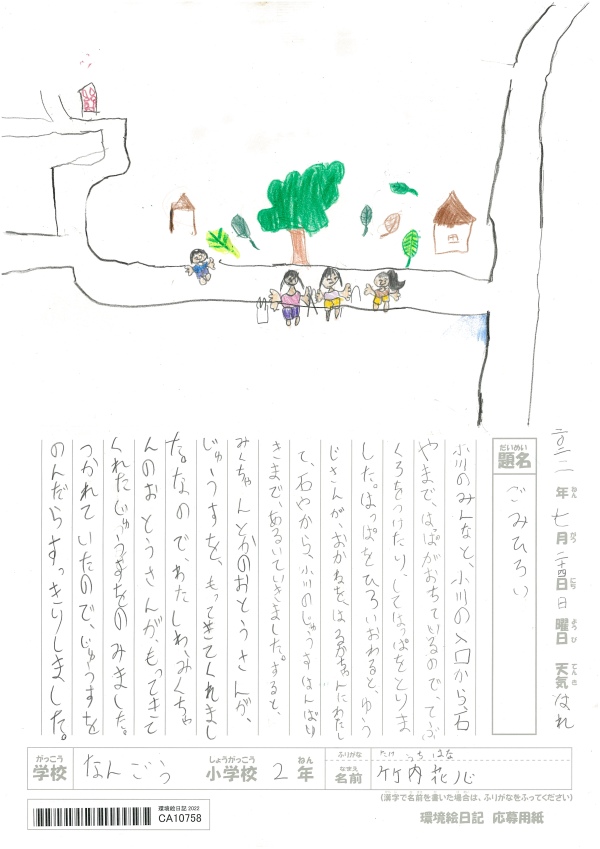 二〇二二年 七月 二十四日 日曜日 天気 はれ
ねん がつ にち ようび てんき
だいめい
題名 ごみひろい
小川のみんなと、小川の入口から、石
やまで、はっぱがおちているので、てぶ
くろをつけたり、してはっぱをとりま
した。はっぱをひろいおわると、ゆう
じさんが、おかねを、はるかちゃんにわたし
て、石やから、小川のじゅうすはんばい
きまで、あるいていきました。すると、
みくちゃんとかのおとうさんが、
じゅうすを、もってきてくれまし
た。なので、わたしわ、みくちゃ
んのおとうさんが、もってきて
くれたじゅうすをのみました。
つかれていたので、じゅうすを
のんだらすっきりしました。
がっこう しょうがっこう ねん
学校 なんごう 小学校 2年
ふりがな たけ うち はな
なまえ
名前 竹内花心
(漢字で名前を書いた場合は、ふりがなをふってください)
環境絵日記 2022
CA10758
環境絵日記 応募用紙